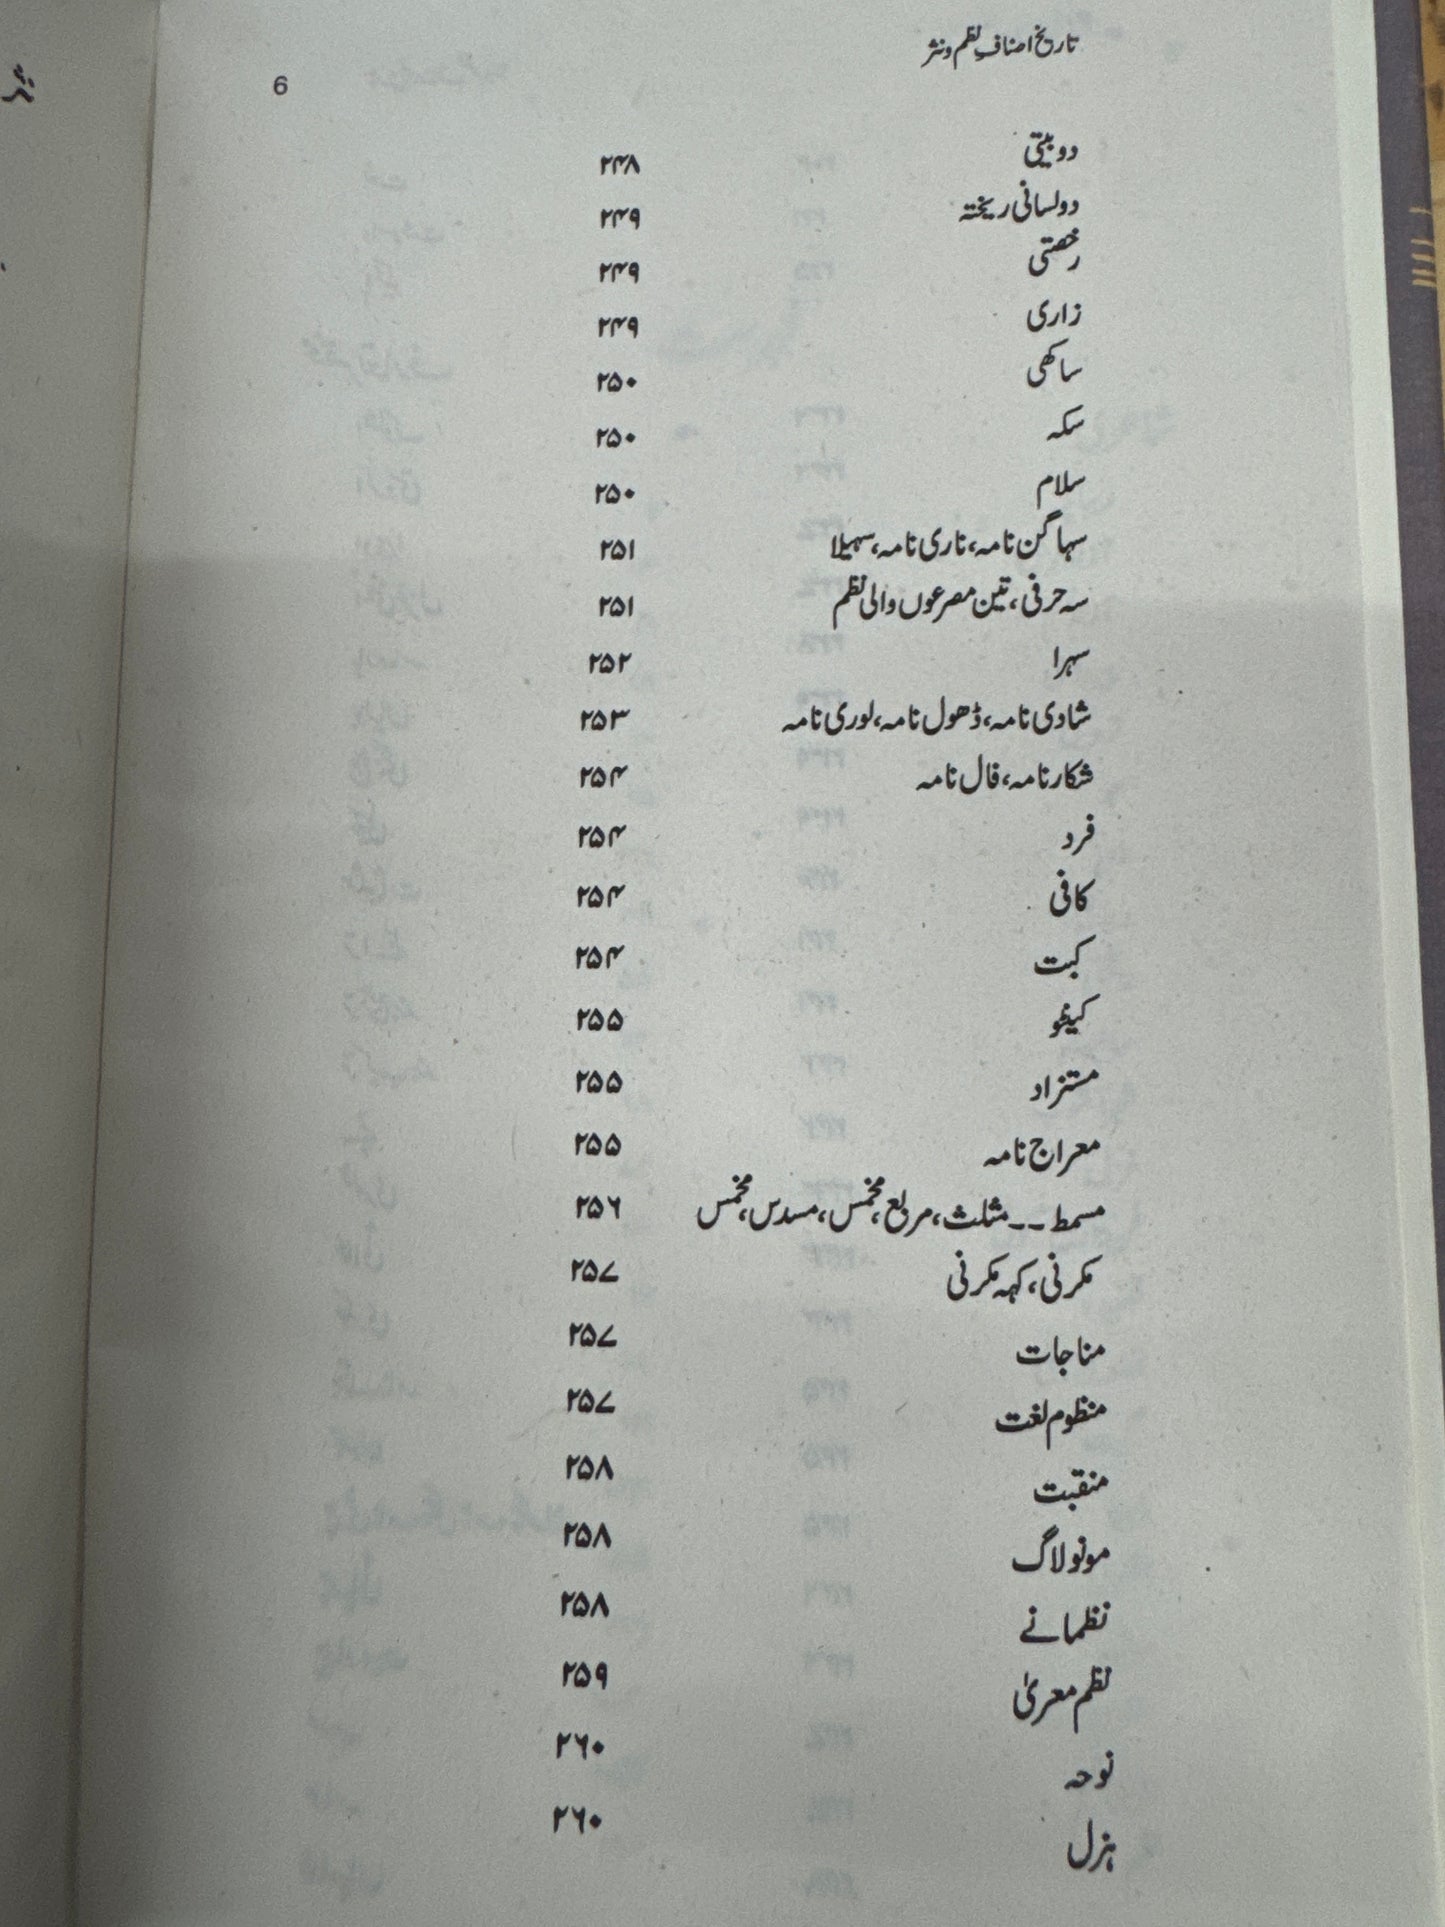 تاریخ اصنافِ نظم و نثر
6
دو بیتی ۲۴۸
دولسانی ریختہ ۲۴۹
رخصتی ۲۴۹
زاری ۲۴۹
ساکھی ۲۵۰
سکہ ۲۵۰
سلام ۲۵۰
سہاگن نامہ، ناری نامہ، سہیلا ۲۵۱
سہ حرفی، تین مصرعوں والی نظم ۲۵۱
سہرا ۲۵۲
شادی نامہ، ڈھول نامہ، لوری نامہ ۲۵۳
شکار نامہ، فال نامہ ۲۵۴
فرد ۲۵۴
کافی ۲۵۴
کبت ۲۵۴
کینٹو ۲۵۵
مستزاد ۲۵۵
معراج نامہ ۲۵۵
مسمط -- مثلث، مربع، مخمس، مسدس، مخمس ۲۵۶
مکرنی، کہہ مکرنی ۲۵۷
مناجات ۲۵۷
منظوم لغت ۲۵۷
منقبت ۲۵۸
مونولاگ ۲۵۸
نظمانے ۲۵۸
نظم معریٰ ۲۵۹
نوحہ ۲۶۰
ہزل ۲۶۰